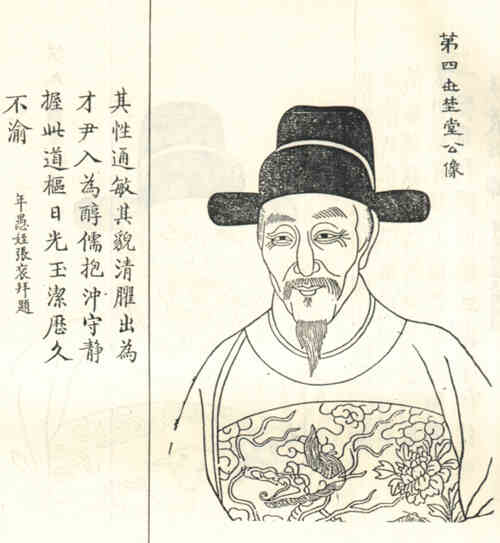 第四世埜堂公像
其性通敏其貌清臞出為
才尹入為醇儒抱沖守静
握此道樞日光玉潔歷久
不渝
年愚姪張袞拜題